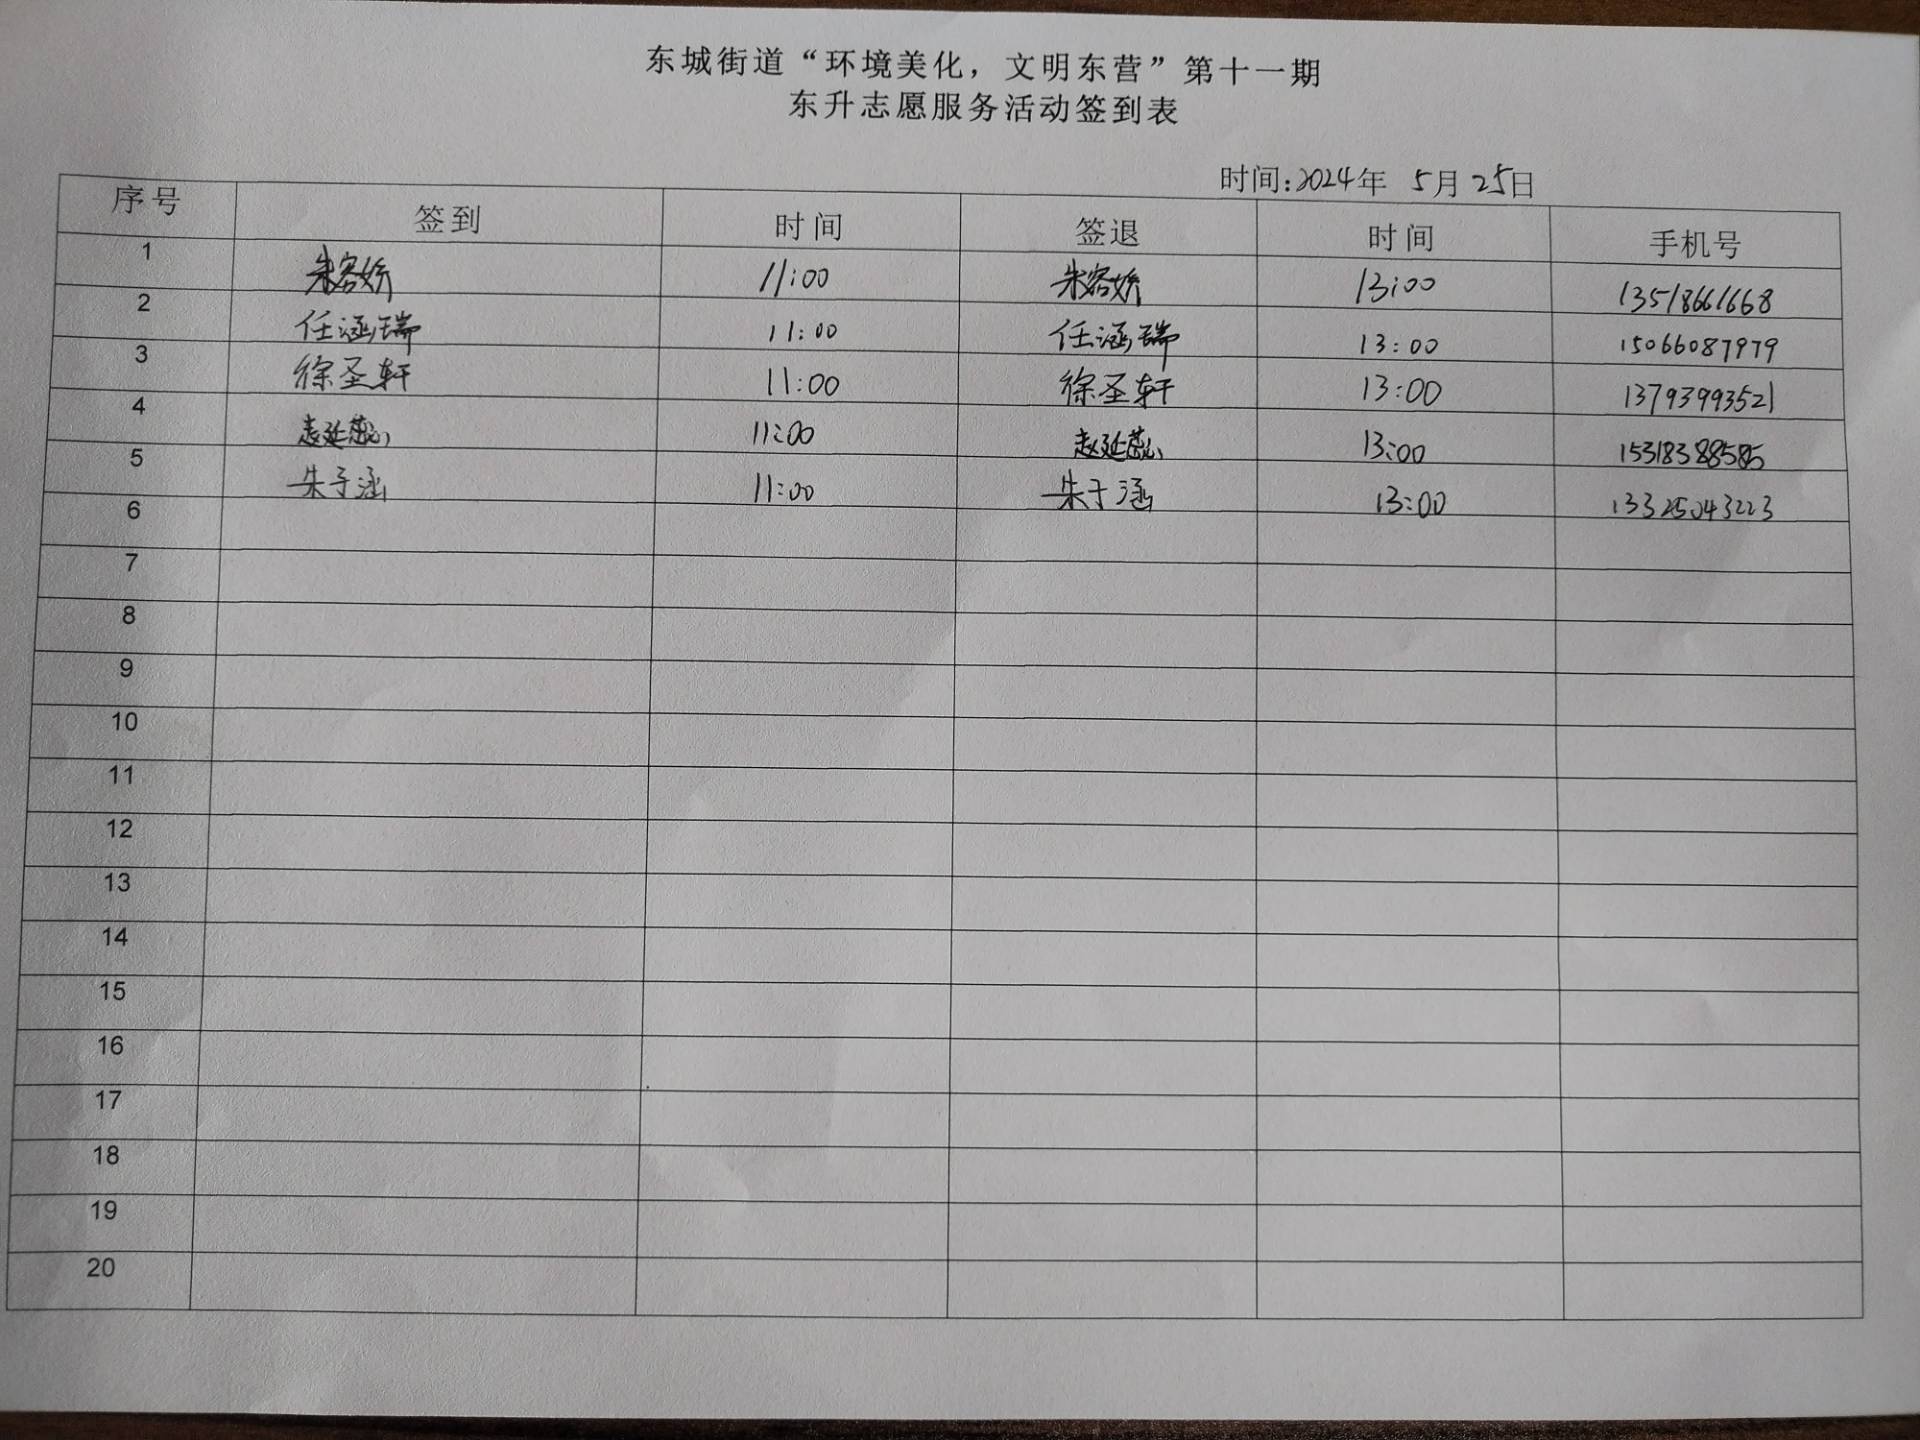 东城街道“环境美化，文明东营”第十一期
东升志愿服务活动签到表
时间:2024年 5月25日
序号 签到 时间 签退 时间 手机号
1 朱容娇 11:00 朱容娇 13:00 13518661668
2 任涵瑞 11:00 任涵瑞 13:00 15066087979
3 徐圣轩 11:00 徐圣轩 13:00 13793993521
4 赵延 11:00 赵延 13:00 15318388585
5 朱于涵 11:00 朱于涵 13:00 13325043223
6
7
8
9
10
11
12
13
14
15
16
17
18
19
20